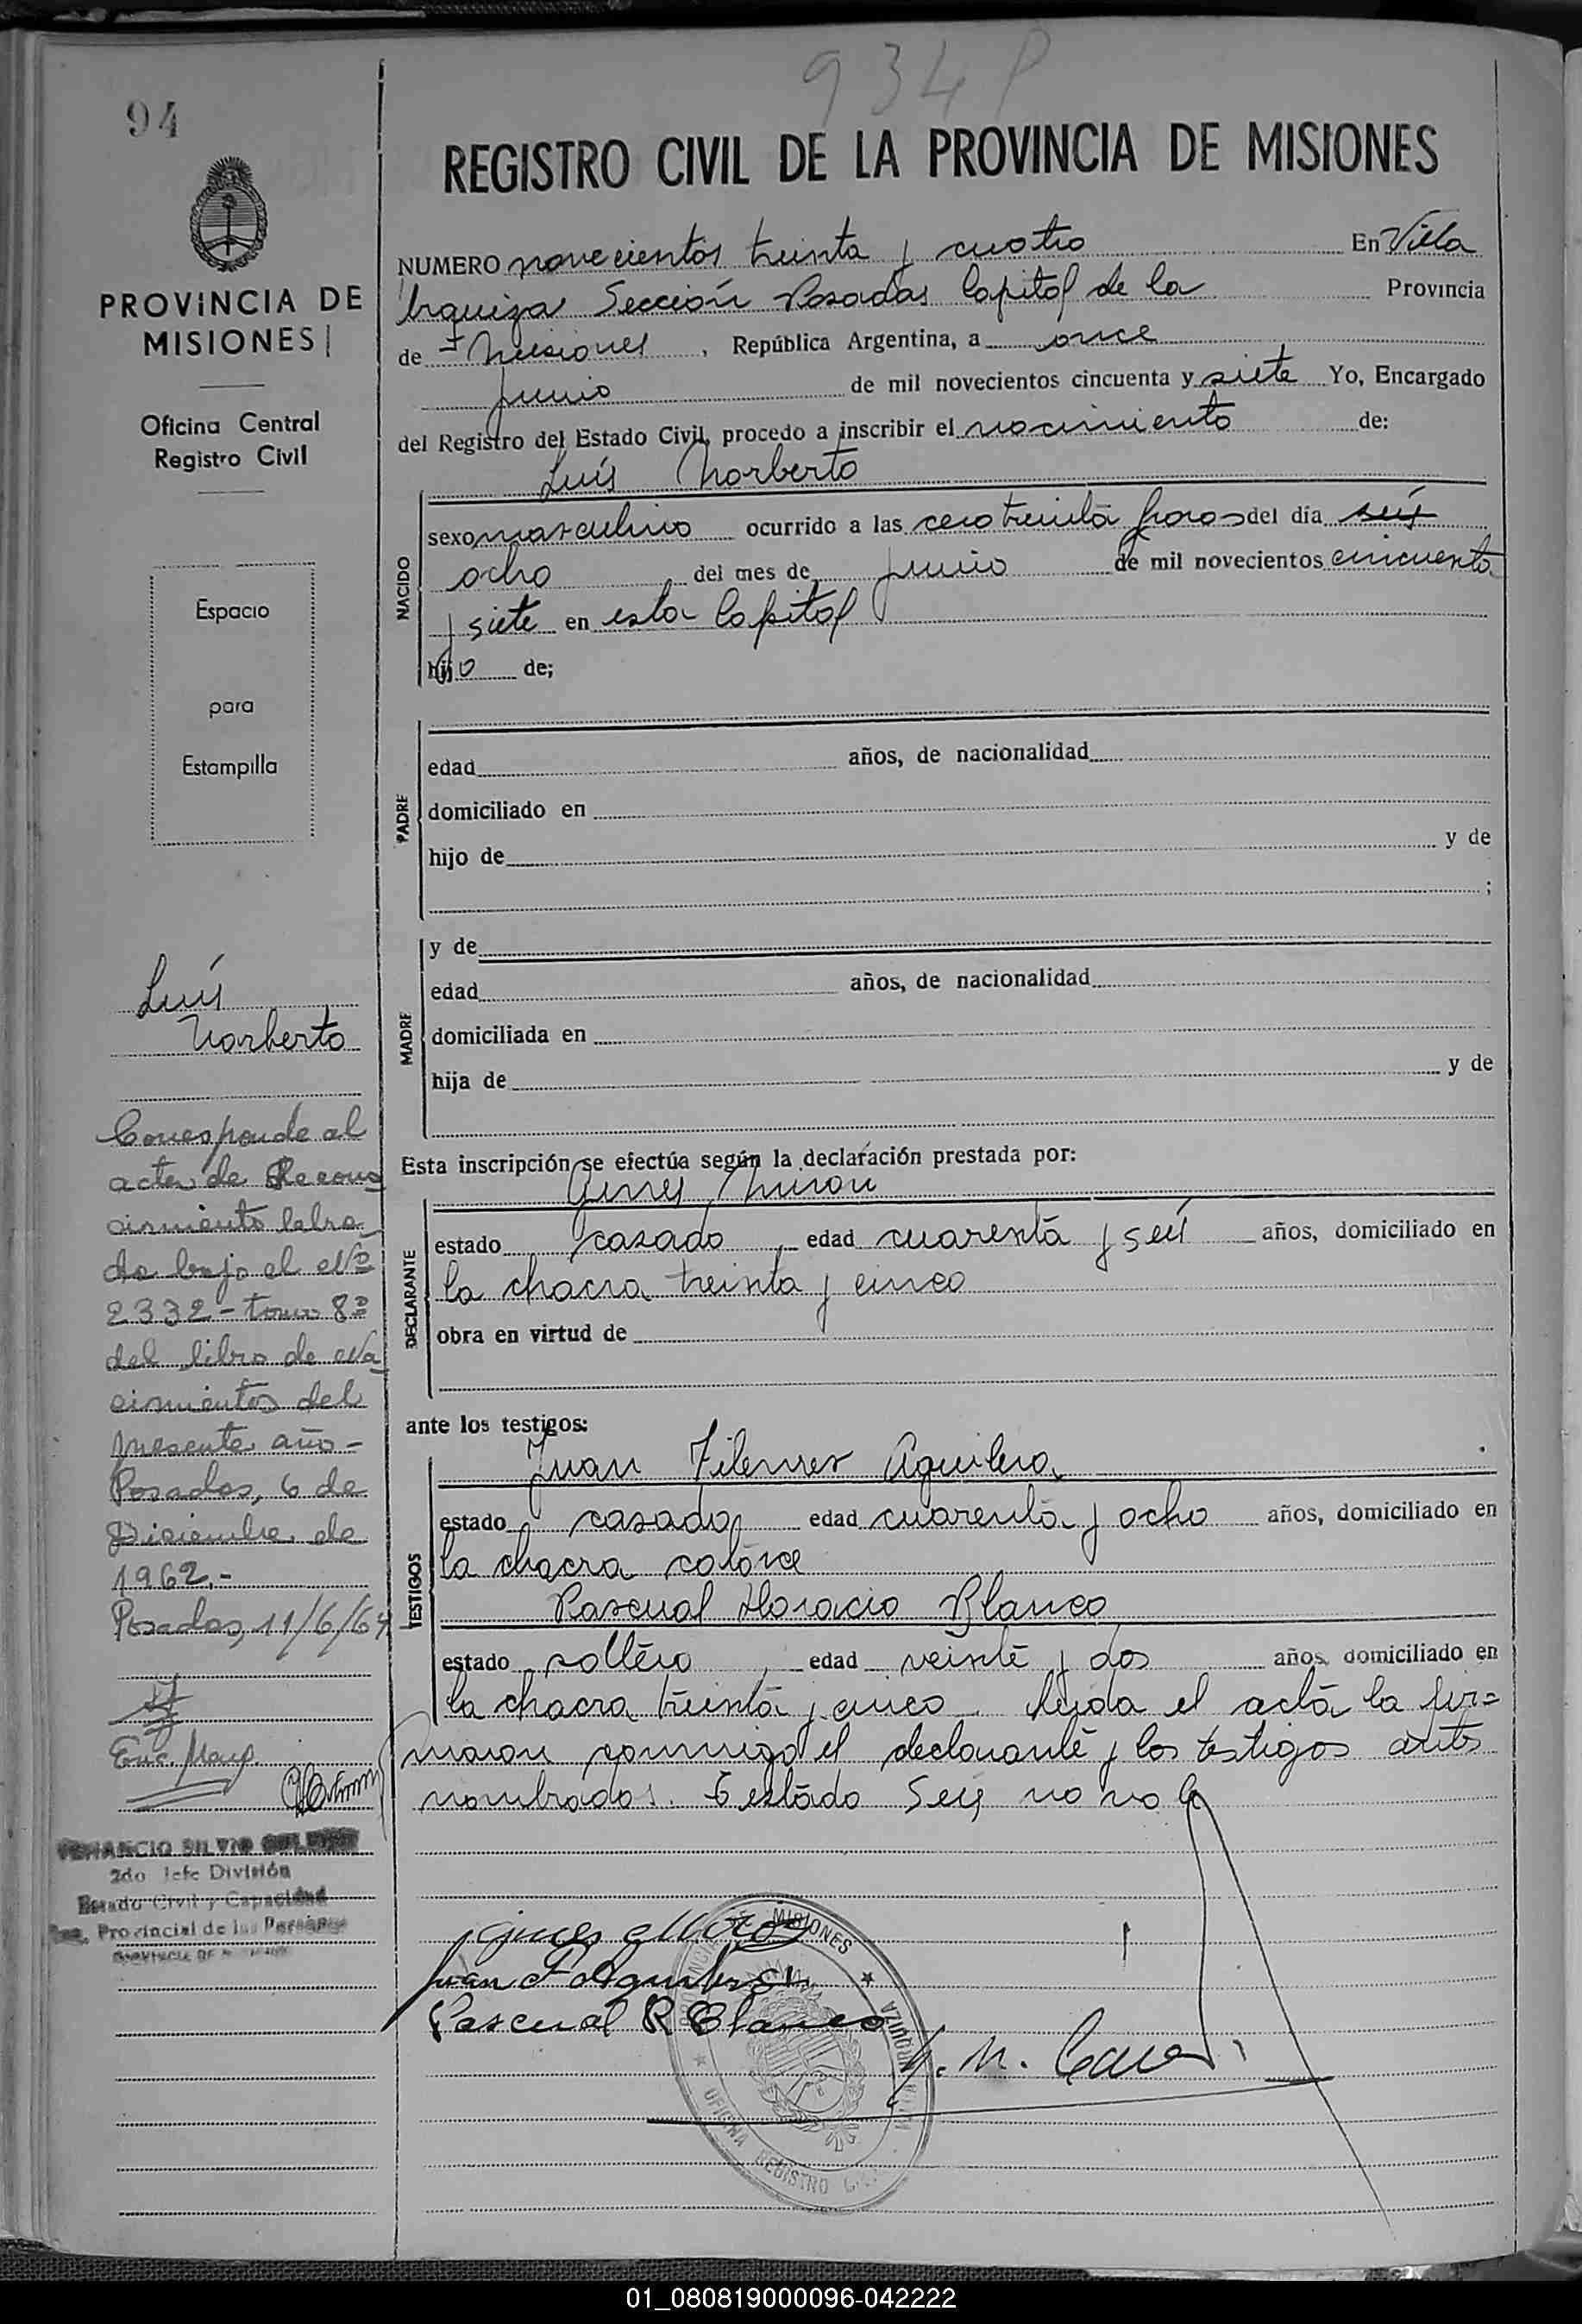 934 P
94
REGISTRO CIVIL DE LA PROVINCIA DE MISIONES
PROVINCIA DE
MISIONES
Oficina Central
Registro Civil
Espacio
para
Estampilla
Luís
Norberto
Corresponde al
acta de Recono
cimiento labra
do bajo el Nº
2332 - tomo 8º
del libro de Na
cimientos del
presente año -
Posadas, 6 de
Diciembre de
1962.-
Posadas, 11/6/64
Enc. Marg.
2do Jefe División
Estado Civil y Capacidad
Provincial de las Personas
NUMERO novecientos treinta y cuatro En Villa
Urquiza Sección Posadas Capital de la Provincia
de Misiones, República Argentina, a once
Junio de mil novecientos cincuenta y siete Yo, Encargado
del Registro del Estado Civil, procedo a inscribir el nacimiento de:
Luís Norberto
NACIDO
sexo masculino ocurrido a las cero treinta horas del día seis
ocho del mes de junio de mil novecientos cincuenta
y siete en esta Capital
hijo de;
PADRE
edad años, de nacionalidad
domiciliado en
hijo de y de
;
MADRE
y de
edad años, de nacionalidad
domiciliada en
hija de y de
Esta inscripción se efectúa según la declaración prestada por:
DECLARANTE
estado casado, edad cuarenta y seis años, domiciliado en
la chacra treinta y cinco
obra en virtud de
ante los testigos:
TESTIGOS
Juan Aguilera
estado casado edad cuarenta y ocho años, domiciliado en
la chacra catorce
Pascual Horacio Blanco
estado soltero, edad veinte y dos años, domiciliado en
la chacra treinta y cinco. Leída el acta la fir=
maron conmigo el declarante y los testigos antes
nombrados. Testado Seis no vale
Juan F Aguilera
Pascual R Blanco
MISIONES
OFICINA REGISTRO
01_080819000096-042222